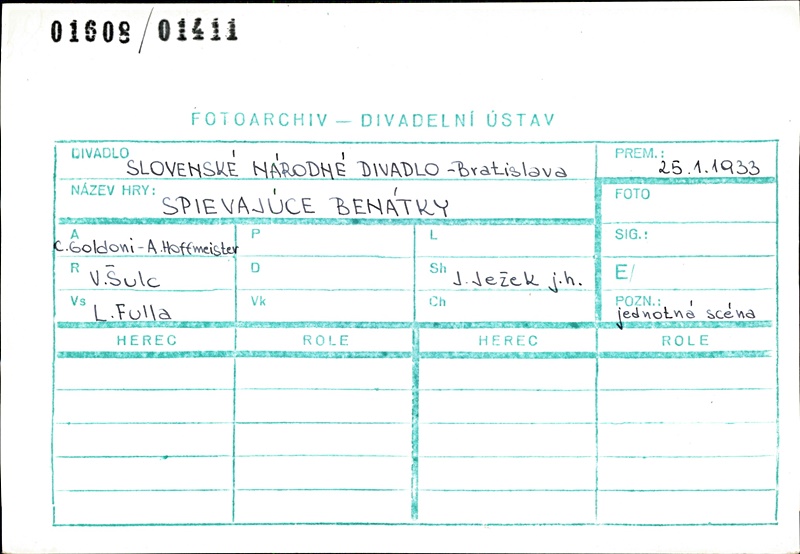 01608/01411
FOTOARCHIV – DIVADELNÍ ÚSTAV
DIVADLO SLOVENSKÉ NÁRODNÉ DIVADLO - Bratislava
PREM.: 25.1.1933
NÁZEV HRY: SPIEVAJÚCE BENÁTKY
FOTO
A C. Goldoni - A. Hoffmeister
P
L
SIG.:
R V. Šulc
D
Sh J. Ježek j.h.
E/
Vs L. Fulla
Vk
Ch
POZN.: jednotná scéna
HEREC ROLE HEREC ROLE